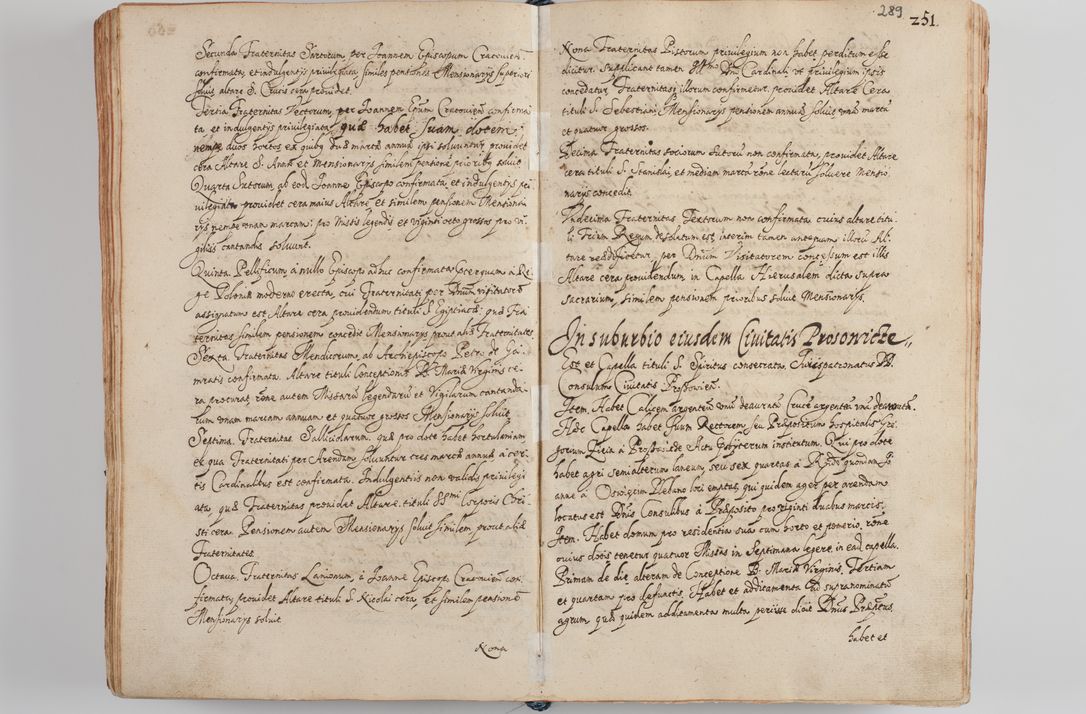 Secunda Fraternitas Sartorum, per Joannem Episcopum Cracovien̄
confirmata, et indulgentijs privilegiata similes pensiones Mensionarijs superiori
soluit altare S. Crucis cera prouidet.
Tertia Fraternitas Vectorum, per Joannem Epum Cracovien̄ confirma
ta, et indulgentijs privilegiata, quæ habet suam dotem,
nempe duos hortos ex quibq duæ marcæ annuæ ipsi soluuntur, prouidet
cera Altare S. Annæ et Mensionarijs similem pensionē priorib9 soluit
Quarta Sutorum, ab eod Joanne Episcopo confirmata, et indulgentijs pri
uilegiata prouidet cera maius Altare, et similem pensionem Mensiona
rijs nempe vnam marcam: pro Missis legendis et viginti octo grossos pro vi
gilijs cantandis soluunt.
Quinta Pellificum, à nullo Episcopo adhuc confirmata à Re
ge Poloniæ moderno erecta, cui Fraternitati per Dnum visitatorē
assignatum est Altare cera prouidendum tituli S. quæ Fra
ternitas similem pensionem concedit Mensionarijs prout aliæ Fraternitates.
Sexta Fraternitas Mendicorum, ab Archiepiscopo Petro de Gą
mratis confirmata. Altare tituli Conceptionis B. Mariæ Virginis ce
ra procurat, rōne autem Missarū legendarū et Vigiliarum cantanda
rum vnam marcam annuam et quatuor grossos Mensionarijs soluit.
Septima. Fraternitas Salliciolarum, quæ pro dote habet hortulaniam
ex qua Fraternitati per Arendam soluuntur tres marcæ annuæ à cer
tis Cardinalibus est confirmata, Indulgentijs non validis privilegi
ata, quæ Fraternitas prouidet Altare tituli SSmi Corporis Chri
sti cera. Pensionem autem Mensionarijs soluit similem, prout aliæ
Fraternitates.
Octaua. Fraternitas Lanionum, à Joanne Episcop. Cracovien̄ con
firmata, prouidet Altare tituli S. Nicolai cera, et similem pensionē
Mensionarijs soluit
Nona
289
251.
Nona Fraternitas Pistorum privilegium non habet perditum esse
dicitur. Supplicant tamen Illmo Dn̄o Cardinali, vt privilegium ipsis
concedatur, Fraternitasq illorum confirmetur. prouidet Altare Cera
tituli S. Sebastiani, Mensionarijs pensionem annuā soluit vnā marcā
et quatuor grossos.
Decima Fraternitas sociorum Sutorū non confirmata, prouidet Altare
cera tituli S. Stanislai, et mediam marcā rōne lecturæ soluere Mensio
narijs concedit.
Vndecima Fraternitas Textorum non confirmata cuius altare titu
li Trium Regum desolatum est, interim tamen antequam illorū Al
tare reædificetur, per Dnum Visitatorem concessum est illis
Altare cera prouidendum in Capella Hierusalem dicta supra
sacrarium, similem pensionem prioribus soluit Mensionarijs.
In suburbio eiusdem Ciuitatis Prosovicze
Est et Capella tituli S. Spiritus consecrata, Jurispatronatus DD.
Consulum Ciuitatis Prossovien̄.
Item. Habet Calicem argenteū vnū deauratū Crucē argenteā vnā deauratā.
Hæc Capella habet suum Rectorem seu Præpositum hospitalis Gre
gorium à Prossovice Actu Præsbyterum institutum. Qui pro dote
habet agri semialterum laneum, seu sex quartas à Rndo quondam Jo
anne à Oswięcim Plebano loci emptas, qui quidem ager per arendam
locatus est Dn̄is Consulibus à Præposito pro viginti duabus marcis.
Item. Habet domum pro residentia sua cum horto et pomerio, rōne
cuius dotis tenetur quatuor Missas in Septimana legere, in ead capella.
Primam de die, alteram de Conceptione B. Mariæ Virginis, Tertiam
et quartam pro defunctis. Habet et addicamenta ad supranominatū
agrum, quæ quidem additamenta multa periisse dicit Dnus Præptus,
habet et